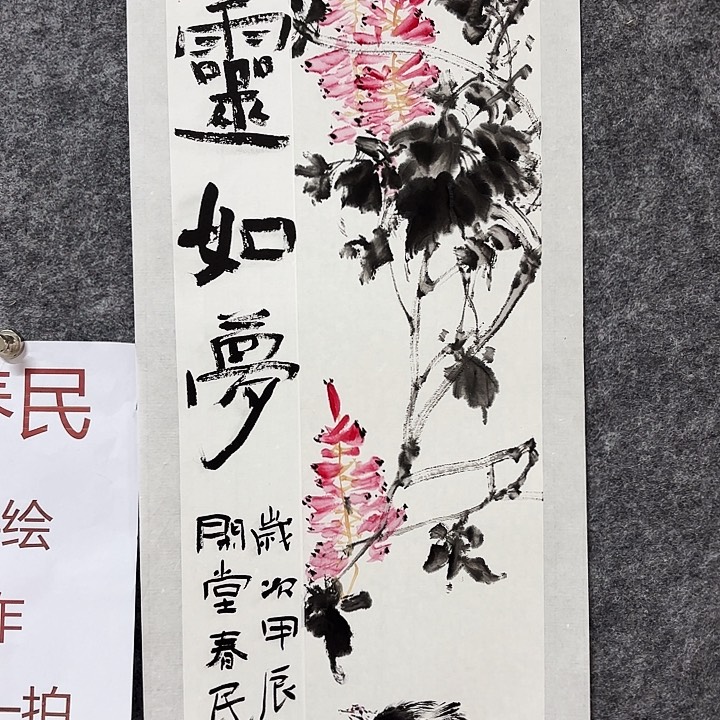 靈如夢
歲次甲辰
閒堂春民
春民
绘
作
一拍